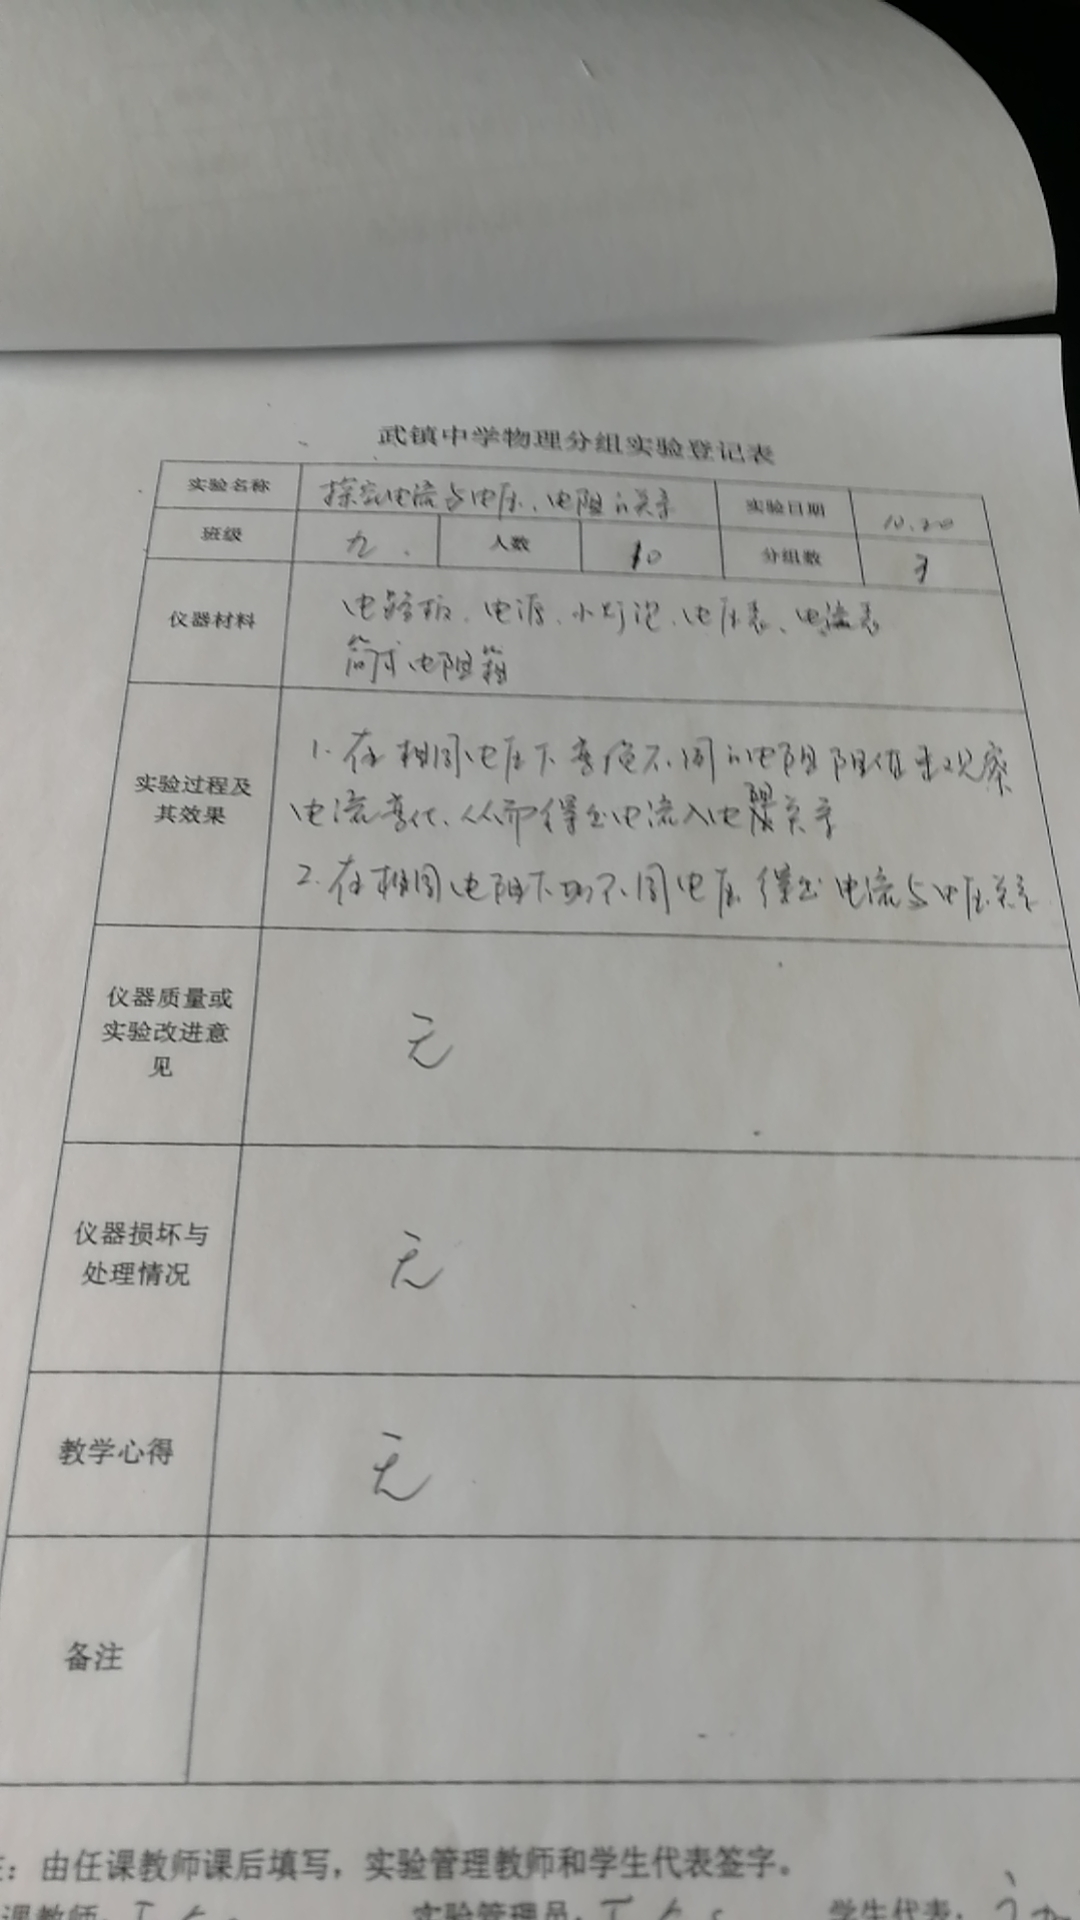 武镇中学物理分组实验登记表
实验名称 探究电流与电压、电阻的关系 实验日期 10.20
班级 九. 人数 10 分组数 3
仪器材料 电路板、电源、小灯泡、电压表、电流表
简式电阻箱
实验过程及其效果
1.在相同电压下 不同的电阻阻值 观察
电流变化、从而得出电流 电阻关系
2.在相同电阻下 不同电压 得出电流与电压关系
仪器质量或实验改进意见 无
仪器损坏与处理情况 无
教学心得 无
备注
由任课教师课后填写，实验管理教师和学生代表签字。
课教师: 实验管理员: 学生代表: